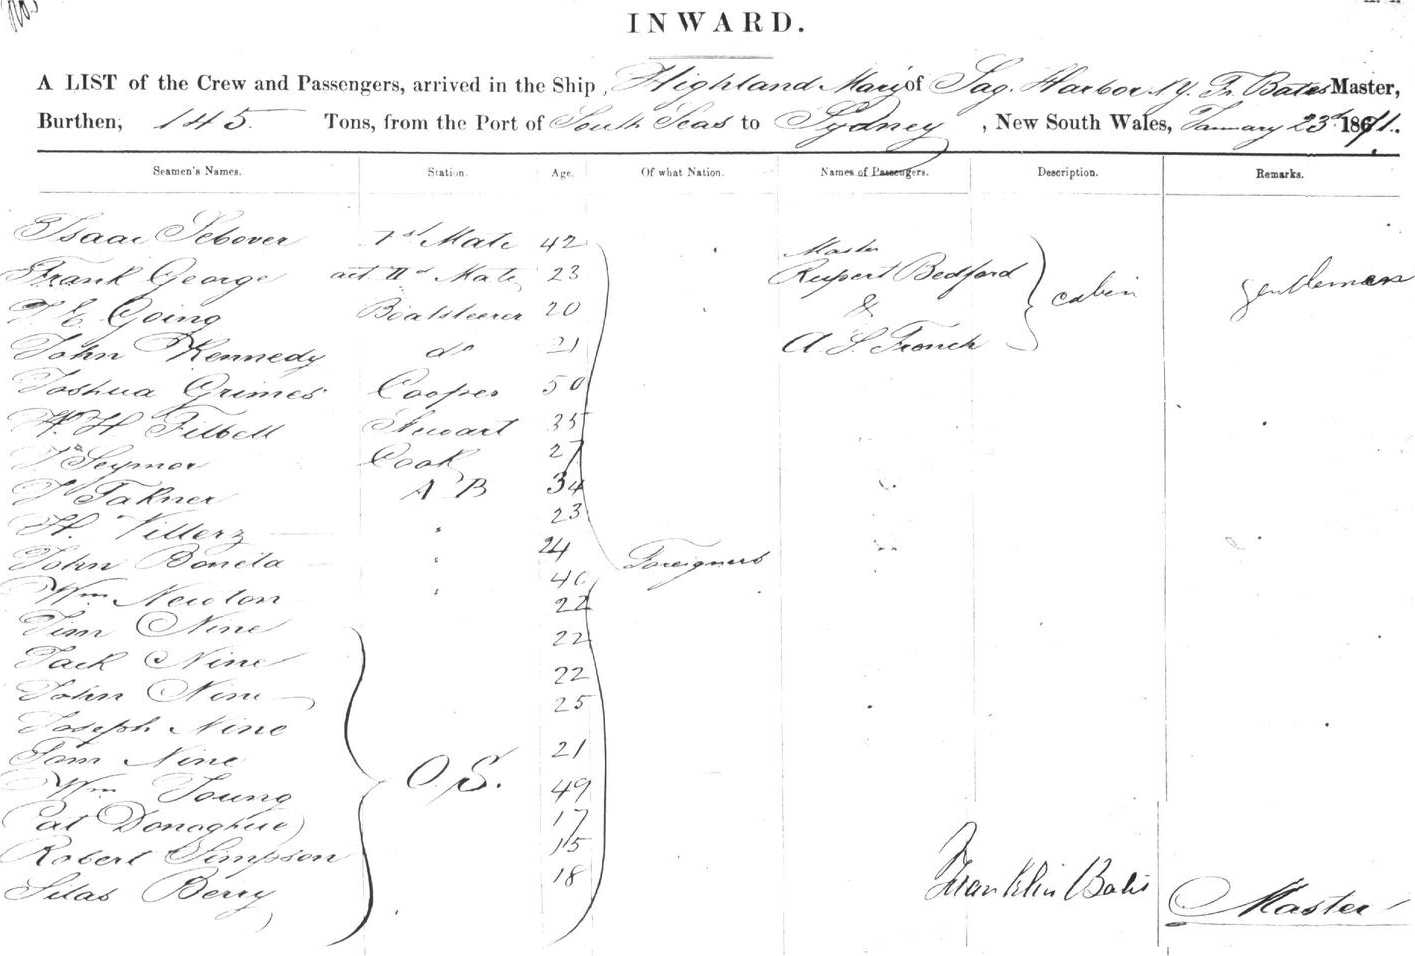 INWARD.
A LIST of the Crew and Passengers, arrived in the Ship, Highland Mary of Sag. Harbor N.Y. Fr. Bates Master,
Burthen, 145. Tons, from the Port of South Seas to Sydney, New South Wales, January 23d 1871.
Seamen's Names. Station. Age. Of what Nation. Names of Passengers. Description. Remarks.
Isaac Sebover 1st Mate 42 Master
Frank George act IId Mate 23 Rupert Bedford cabin gentlemen
T. E. Going Boatsteerer 20 &
John Kennedy do 21 A. S. French
Joshua Grimes Cooper 50
W. H Filbell Stewart 35
Seymor Cook 27
Fakner A B 34
H. Villerz " 23
John Bonita " 24 Foreigners
Wm Newton " 40
Jim Nine 22
Jack Nine 22
John Nine 22
Joseph Nine 25
Tom Nine O.S. 21
Wm Young 49
Pat Donaghue 17
Robert Simpson 15
Silas Berry 18 Franklin Bates Master